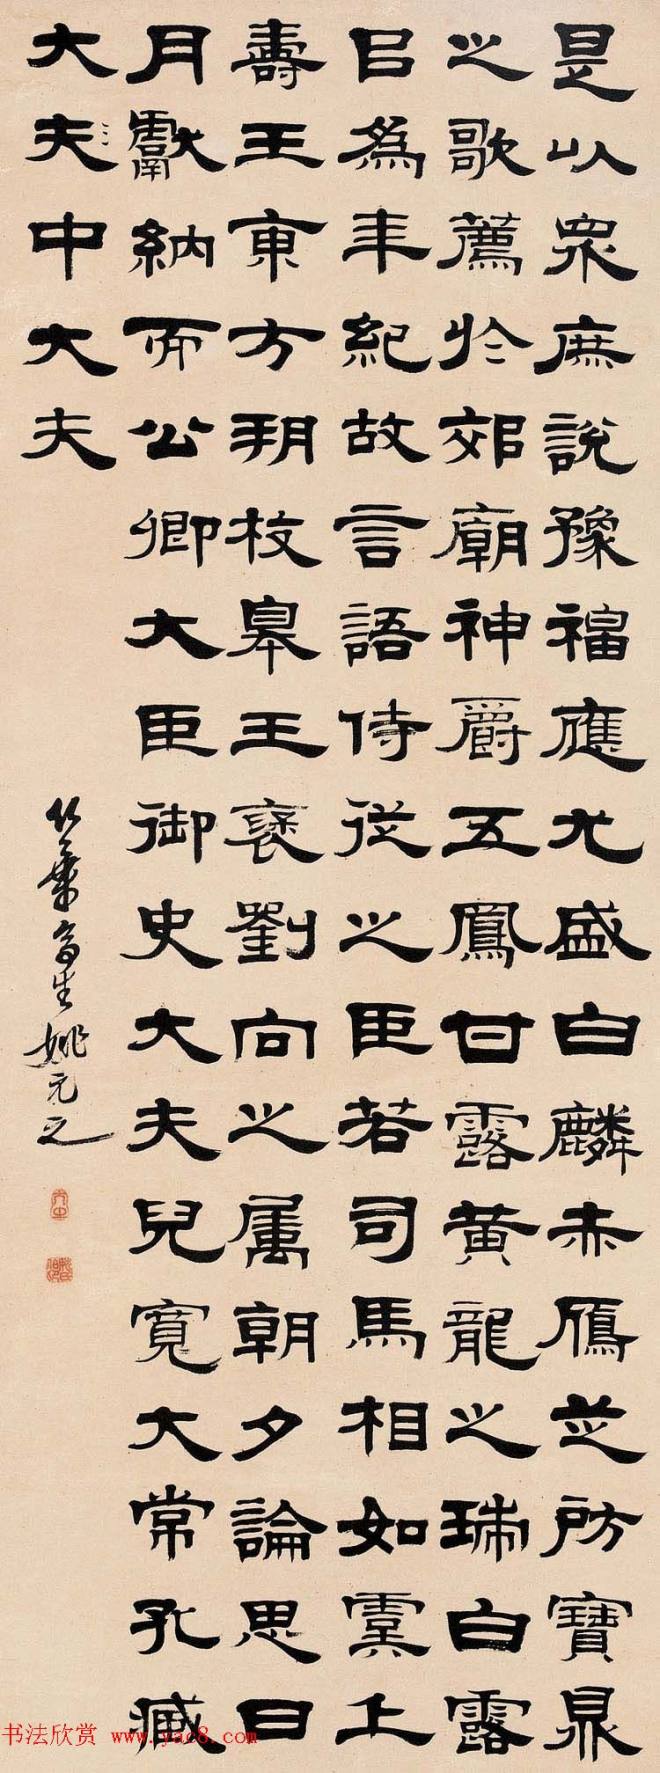 是以眾庶說豫福應尤盛白麟赤鴈芝房寶鼎
之歌薦於郊廟神爵五鳳甘露黃龍之瑞白露
㠯為年紀故言語侍從之臣若司馬相如虞上
壽王東方朔枚皋王褒劉向之屬朝夕論思日
月獻納而公卿大臣御史大夫兒寬大常孔臧
大夫中大夫
竹葉亭生姚元之
书法欣赏 www.yac8.com